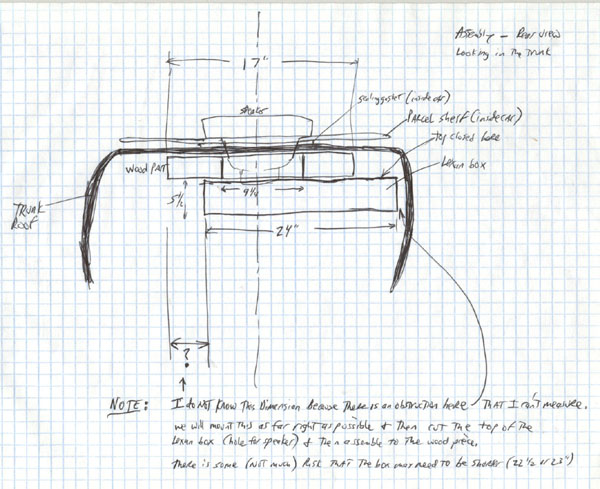 Assembly - Rear view
Looking in the Trunk
17"
speaker
sealing gasket (inside car)
Parcel shelf (inside car)
top closed here
Lexan box
wood part
9 1/4
5 1/2
24"
Trunk
Roof
?
NOTE: I do NOT KNOW This Dimension Because There is an obstruction here THAT I can't measure.
we will mount this as far right as possible & Then cut The top of the
Lexan box (hole for speaker) & Then assemble to The wood piece.
There is some (NOT much) Risk THAT The box may need to be shorter (22 1/2 or 23")